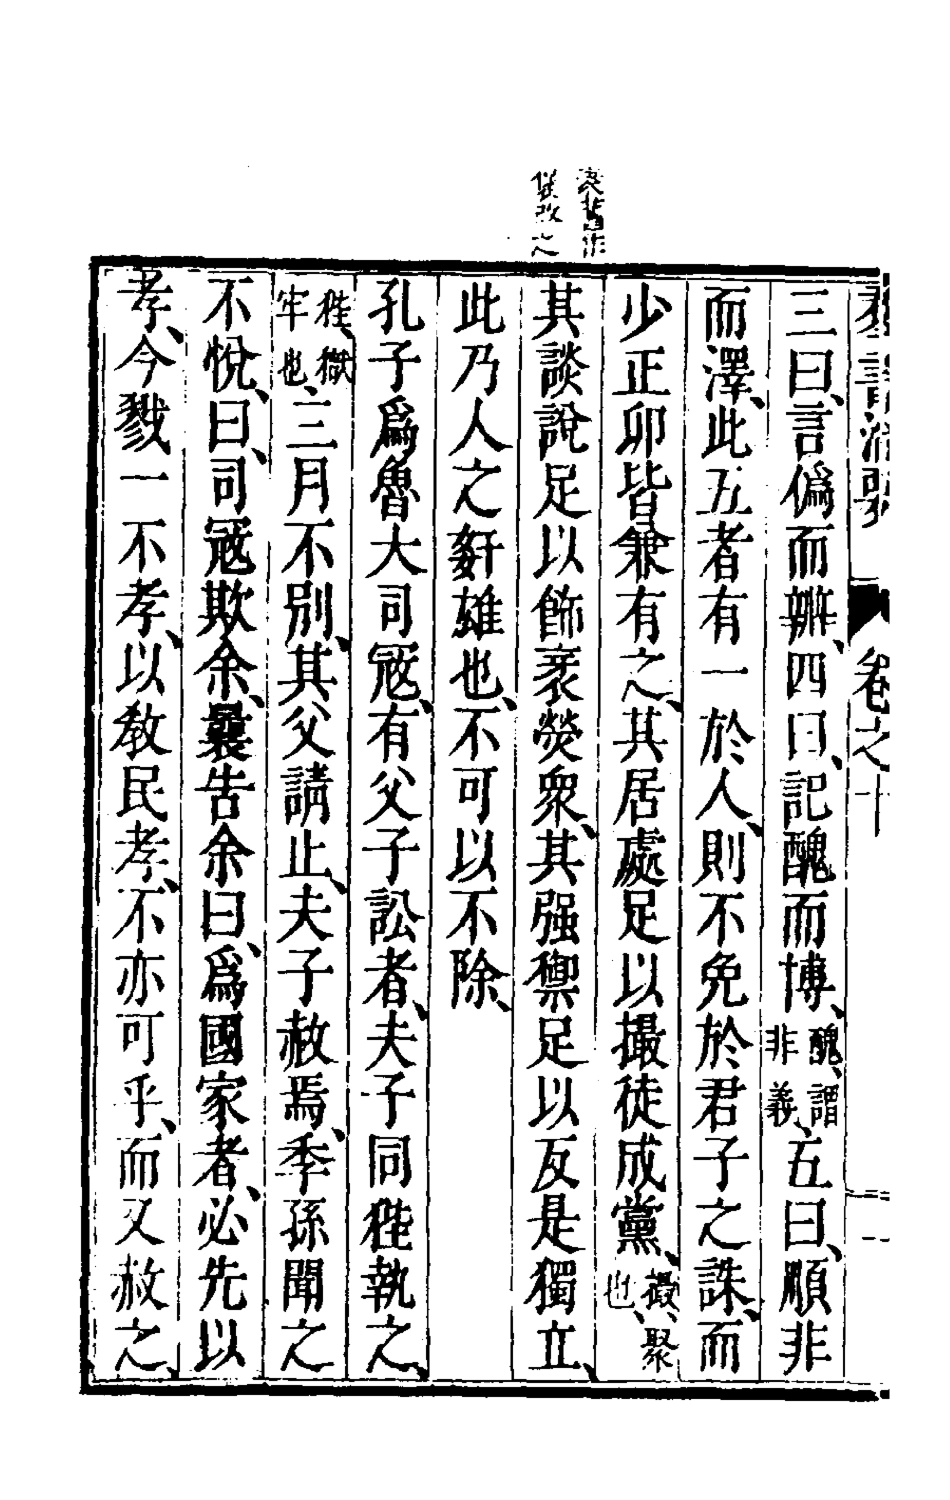 袠舊作
從改之
羣書治要 卷之十
三曰、言僞而辨、四曰、記醜而博、醜、謂非義、五曰、順非
而澤、此五者有一於人、則不免於君子之誅、而
少正卯皆兼有之、其居處足以撮徒成黨、撮、聚也、
其談說足以飾袠熒衆、其强禦足以反是獨立、
此乃人之姧雄也、不可以不除、
孔子爲魯大司寇、有父子訟者、夫子同狴執之、
狴、獄牢也、三月不別、其父請止、夫子赦焉、季孫聞之
不悅、曰、司寇欺余、曩告余曰、爲國家者、必先以
孝、今戮一不孝、以敎民孝、不亦可乎、而又赦之、